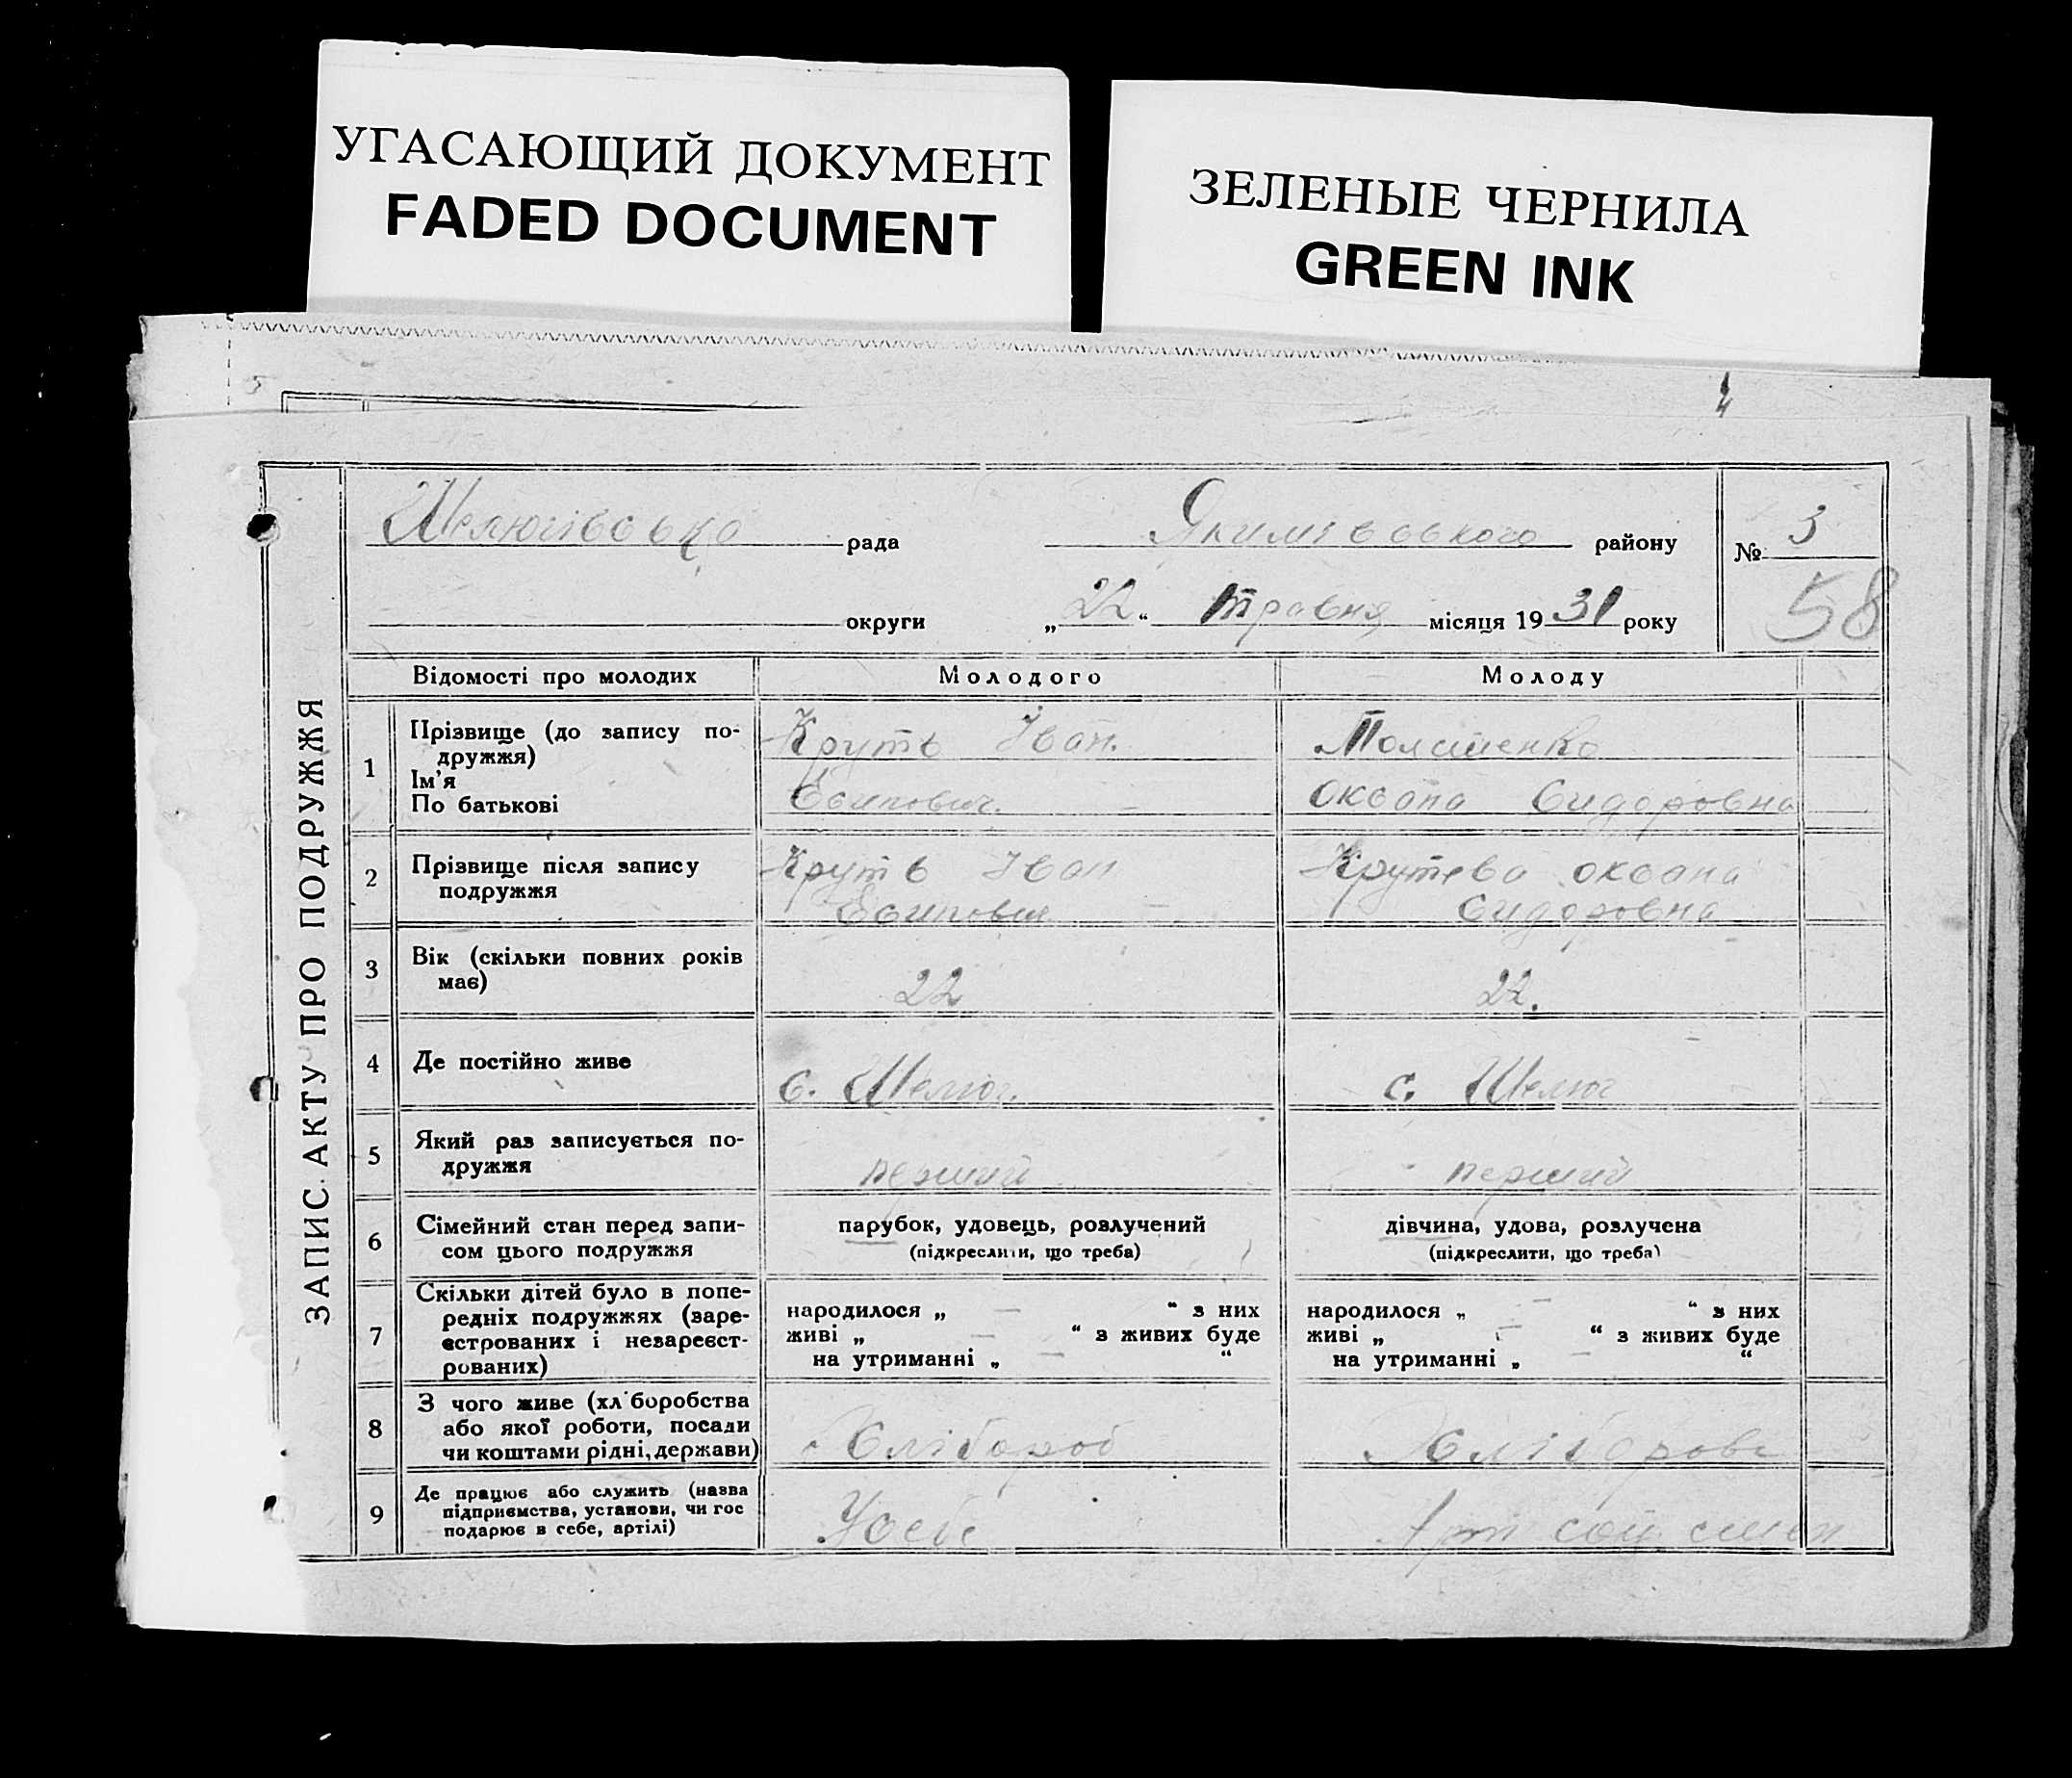 УГАСАЮЩИЙ ДОКУМЕНТ
FADED DOCUMENT
ЗЕЛЕНЫЕ ЧЕРНИЛА
GREEN INK
ЗАПИС АКТУ ПРО ПОДРУЖЖЯ
Шелюгівська рада Якимівського району № 3
округи „22“ травня місяця 1931 року 58
Відомості про молодих Молодого Молоду
1 Прізвище (до запису по-
дружжя)
Ім'я
По батькові
Круть Іван
Есипович
Оксана Сидоровна
2 Прізвище після запису
подружжя
Круть Іван
Есипович
Крутева оксана
Сидоровна
3 Вік (скільки повних років
має)
22
22.
4 Де постійно живе
с. Шелюг.
с. Шелюг
5 Який раз записується по-
дружжя
перший
перший
6 Сімейний стан перед запи-
сом цього подружжя
парубок, удовець, розлучений
(підкреслити, що треба)
дівчина, удова, розлучена
(підкреслити, що треба)
7 Скільки дітей було в попе-
редніх подружжях (заре-
єстрованих і незареєст-
рованих)
народилося „ — “ з них
живі „ — “ з живих буде
на утриманні „ — “
народилося „ — “ з них
живі „ — “ з живих буде
на утриманні „ — “
8 З чого живе (хліборобства
або якої роботи, посади
чи коштами рідні, держави)
Хлібороб
9 Де працює або служить (назва
підприємства, установи, чи гос
подарює в себе, артілі)
Усебе